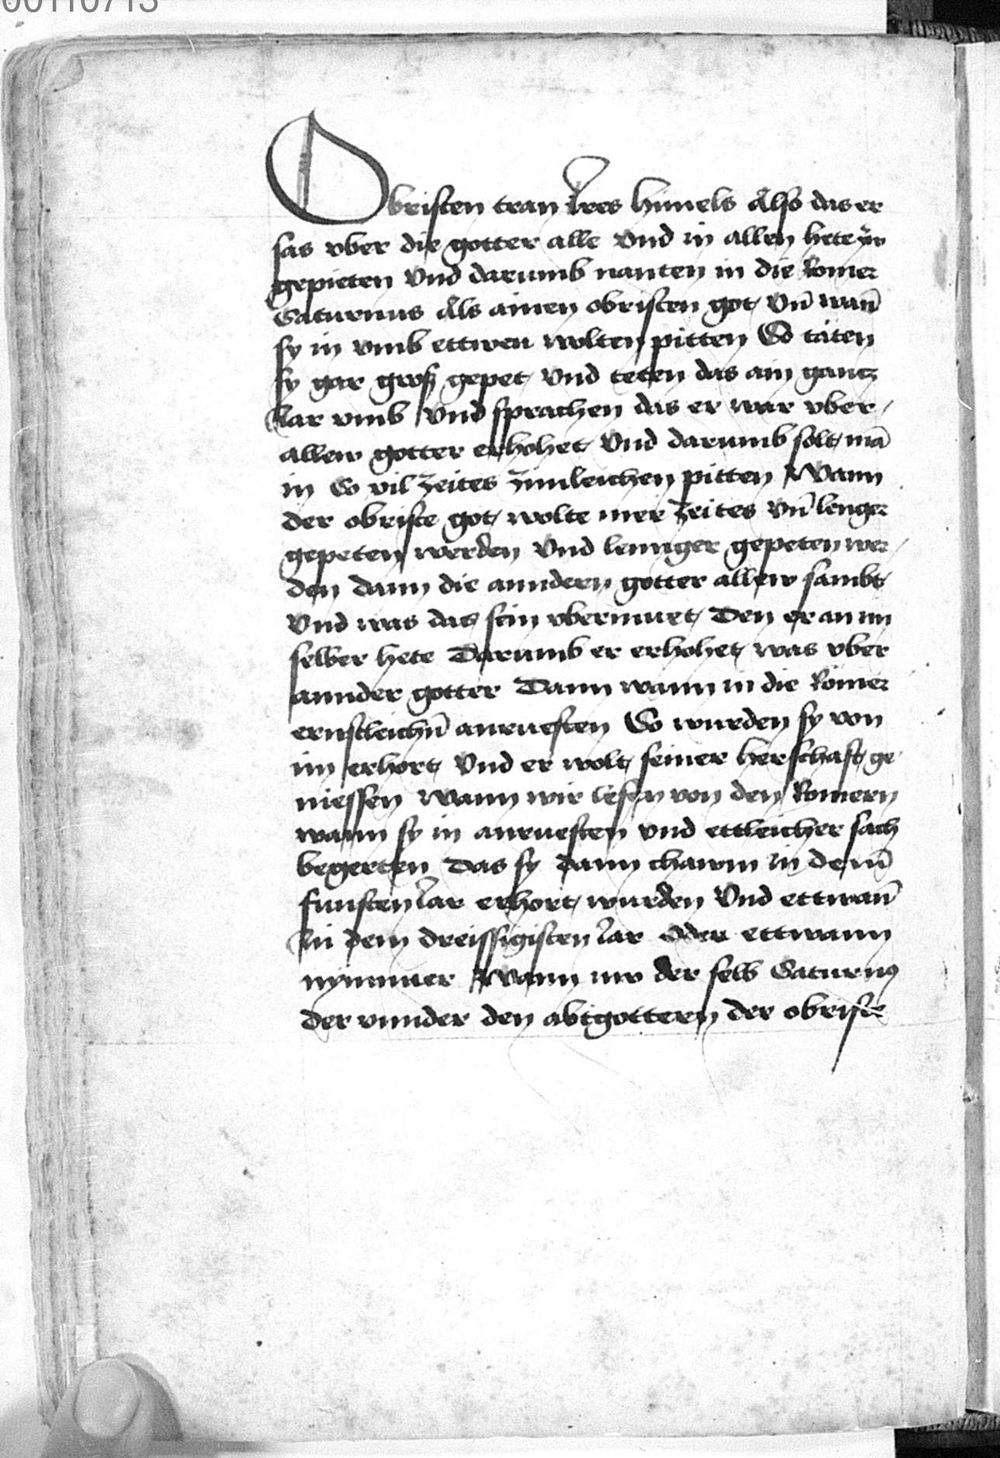 00110713
Obristen tran Jres himels Also das er
sas vber die gotter alle Vnd in allen hete zw
gepieten Vnd darumb nanten in die Romer
Saturnus Als ainen obristen got Vn̄ wan̄
sy in vmb ettwen wolten pitten So täten
sy gar groß gepet Vnd teten das ain gancz
Jar vmb Vnd sprachen das er war vber
allew gotter erhohet Vnd darumb solt mā
in So vil zeites zimleichen pitten Wann
der obriste got wolte mer zeites Vn̄ lenger
gepeten werden Vnd lennger gepeten wer
den dann die anndern gotter allew sambt
Vnd was das sein vbermuet Den er an im
selber hete Darumb er erhohet was vber
annder gotter Dann wann in die Römer
ernstleichn̄ anruefften So wurden sy von
im erhort Vnd er wolt seiner herschafft ge
niessen Wann wir lesen von den Romern
wann sy in anruefften vnd ettleicher sach
begerten Das sy dann chawm in dem̄
funften Jar erhort wurden Vnd ettwan̄
In dem dreissigisten Jar Oder ettwann
nymmer Wann nw der selb Saturnus
der vnnder den abtgottern der obriste